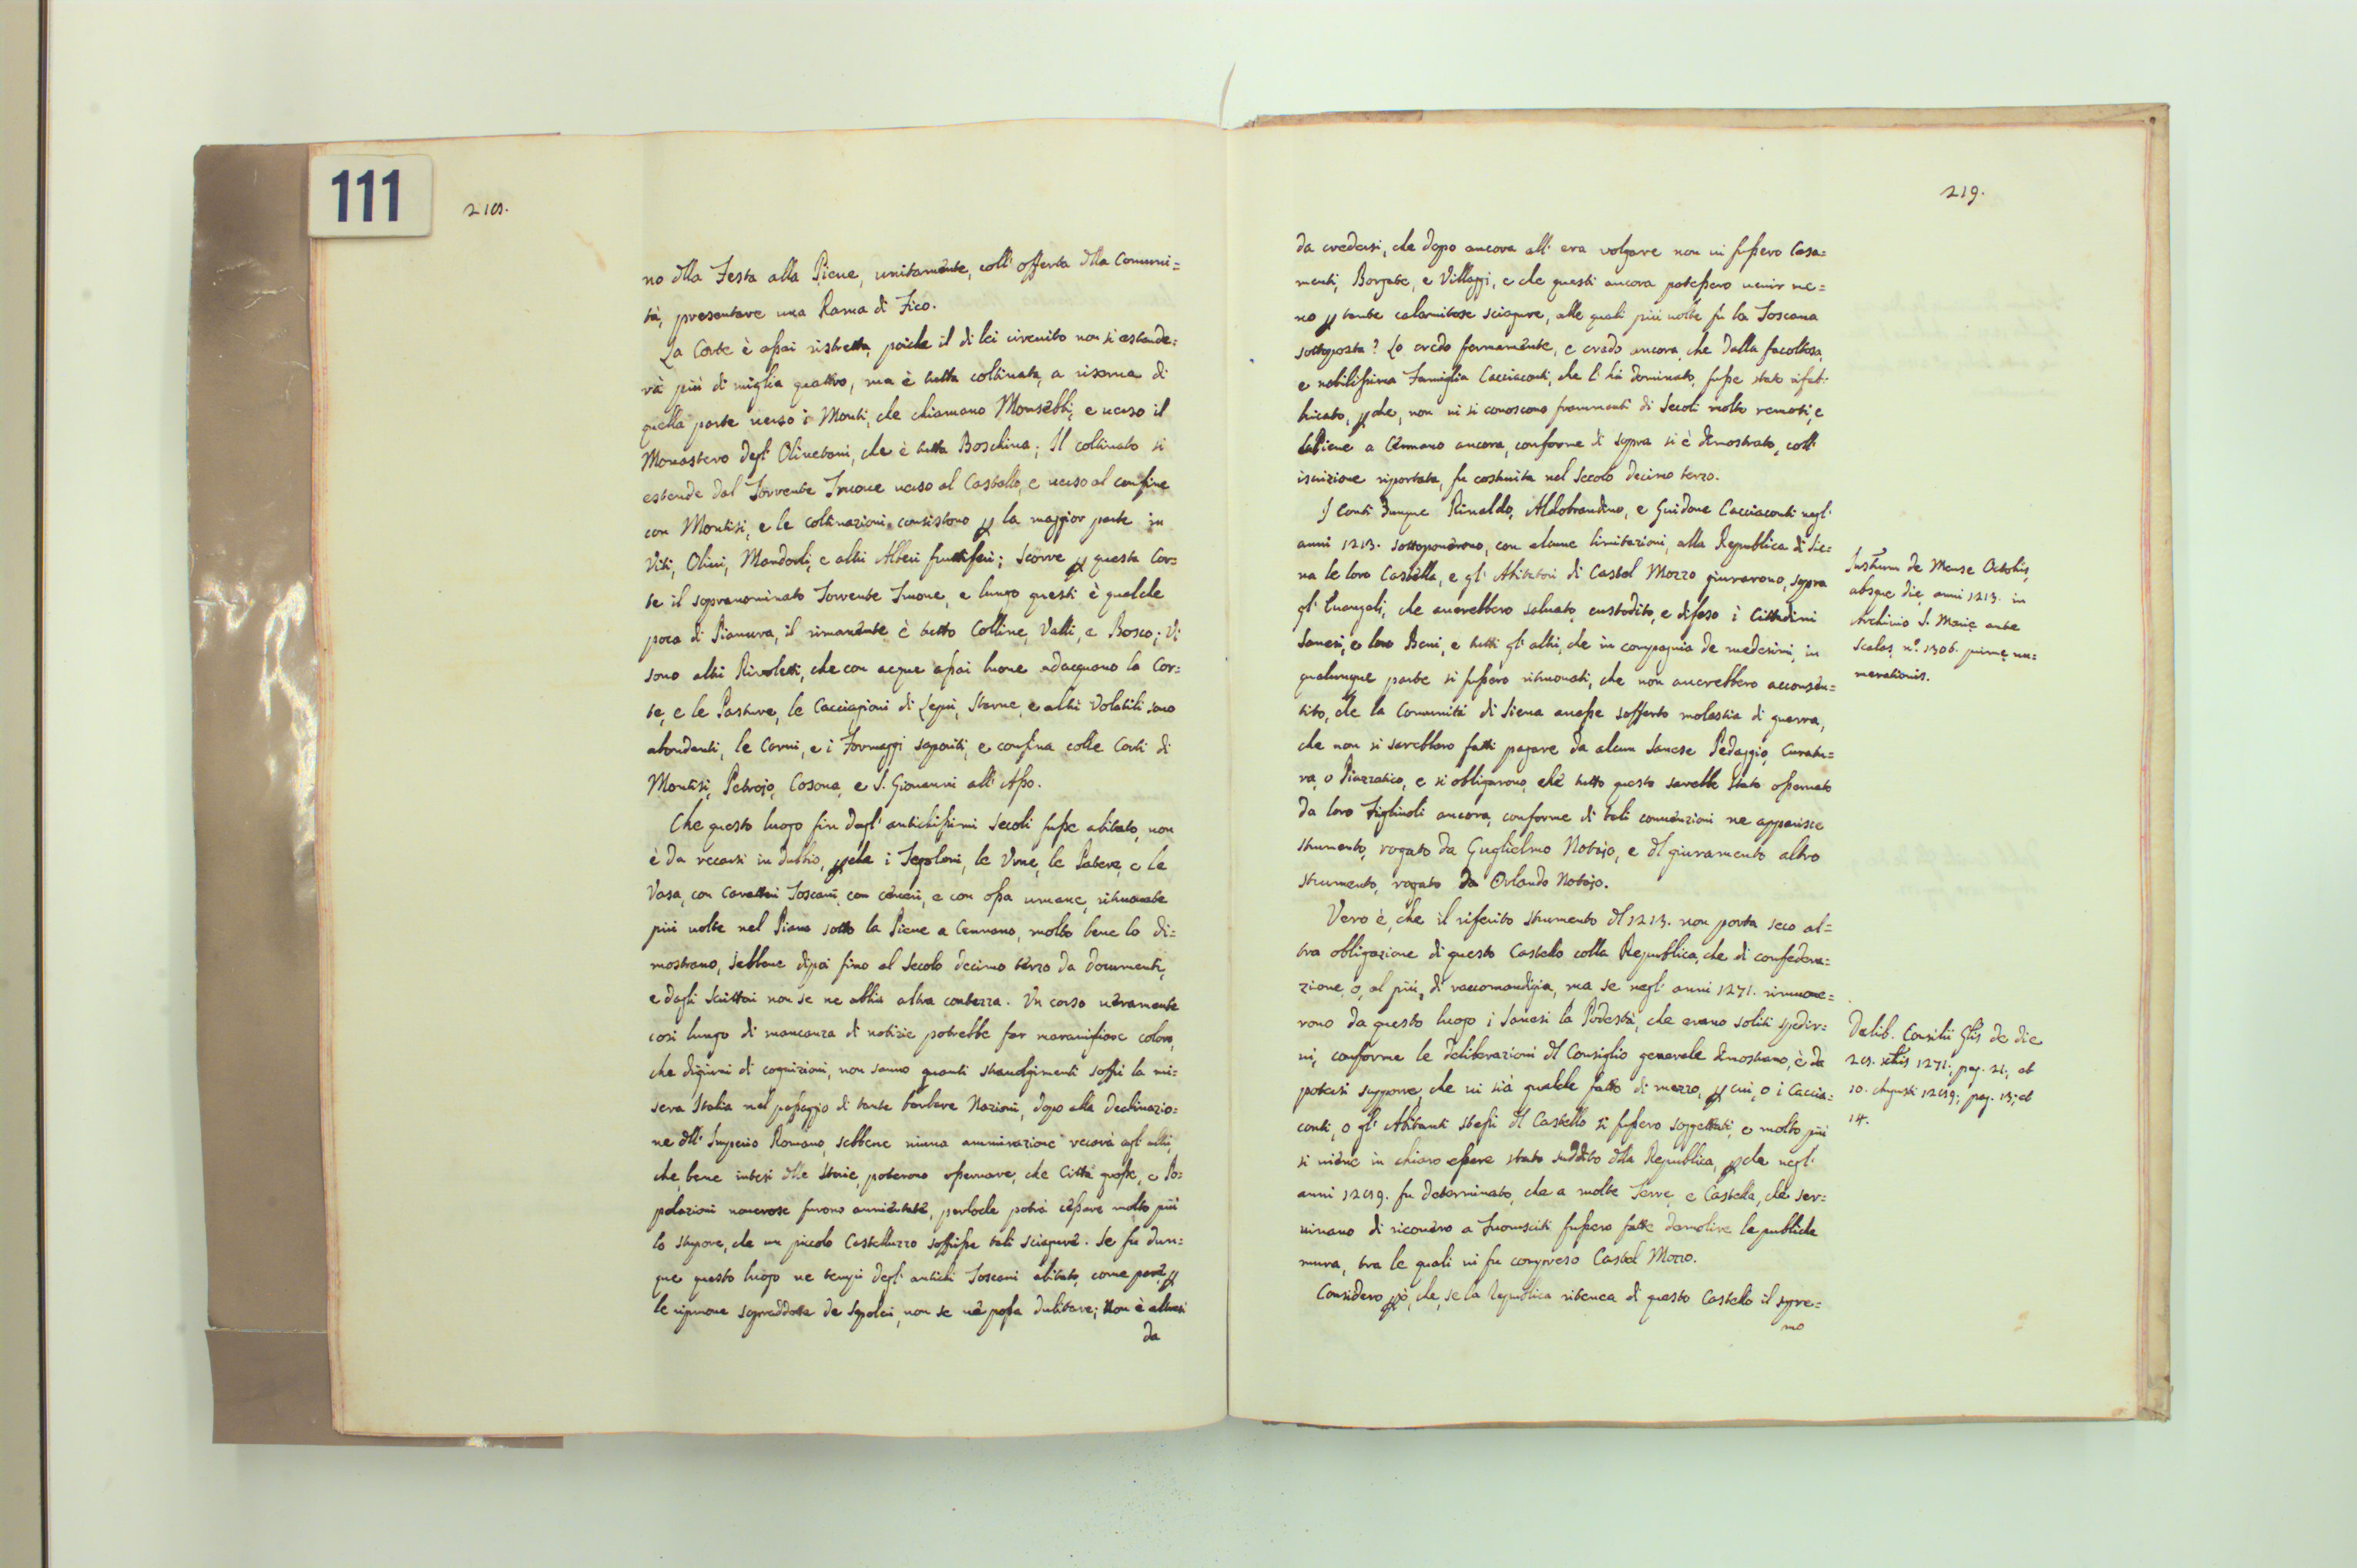 111
218.
no dlla Festa alla Pieue, unitamente, coll' offerta dlla Comuni=
tà, presentare una Rama di Fico.
La Corte è assai ristretta, poiche il di lei circuito non si estende=
rà più di miglia quattro, ma è tutta coltiuata, a riserua di
quella parte uerso i Monti, che chiamano, e uerso il
Monastero degl' Oliuetani, che è tutta Boschiua; Il coltiuato si
estende dal Torrente Truoue uerso al Castello, e uerso al confine
con Montisi, e le coltiuazioni consistono p la maggior parte in
Viti, Oliui, Mandorli, e altri Alberi fruttiferi; Scorre p questa Cor=
te il sopranominato Torrente Truoue, e lungo questi è qualche
poca di Pianura, il rimanente è tutto Colline, Valli, e Bosco; Vi
sono altri Riuoletti, che con acque assai buone adacquano la Cor=
te, e le Pasture, le Cacciagioni di Lepri, Starne, e altri Volatili sono
abondanti, le Carni, e i Formaggi saporiti, e confina colle Corti di
Montisi, Petrojo, Cosona, e S. Giouanni all' Asso.
Che questo luogo fin dagl' antichissimi secoli fusse abitato, non
è da recarsi in dubbio, pche i Sepolcri, le Vrne, le Patere, e le
Vasa, con Caratteri Toscani, con ceneri, e con ossa umane, ritrouate
più uolte nel Piano sotto la Pieue a Cennano, molto bene lo di=
mostrano, sebbene dipoi fino al secolo decimo terzo da documenti,
e dagli scrittori non se ne abbia altra contezza. Vn corso ueramente
così lungo di mancanza di notizie potrebbe far marauigliare coloro,
che digiuni di cognizioni, non sanno quanti strauolgimenti soffrì la mi=
sera Italia nel passaggio di tante barbare Nazioni, dopo alla declinazio=
ne dll' Imperio Romano, sebbene niuna ammirazione recarà agl' altri,
che bene intesi dlle Storie, poterono osseruare, che Città grosse, e Po=
polazioni numerose furono annientate, perloche potrà cessare molto più
lo stupore, che un piccolo Castelluzzo soffrisse tali sciagure. Se fu dun=
que questo luogo ne tempi degl' antichi Toscani abitato, come pare, p
le riproue sopraddotte de Sepolcri, non se ne possa dubitare; Non è altresì
da
219.
da credersi, che dopo ancora all' era volgare non ui fussero Casa=
menti, Borgate, e Villaggi, e che questi ancora potessero uenir me=
no p tante calamitose sciagure, alle quali più uolte fù la Toscana
sottoposta? Lo credo fermamente, e credo ancora, che dalla facoltosa,
e nobilissima Famiglia Cacciaconti, che l' hà dominato, fusse stato rifab=
bricato, pche, non ui si conoscono frammenti di secoli molto remoti, e
la Pieue a Cennano ancora, conforme di sopra si è dimostrato, coll'
iscrizione riportata, fu costruita nel secolo decimo terzo.
I Conti dunque Rinaldo, Aldobrandino, e Guidone Cacciaconti negl'
anni 1213. sottoposero, con alcune limitazioni, alla Republica di Sie=
na le loro Castella, e gl' Abitatori di Castel Mozzo giurarono, sopra
gl' Euangeli, che auerebbero saluato, custodito, e difeso i Cittadini
Sanesi, e loro Beni, e tutti gl' altri, che in compagnia de medesimi, in
qualunque parte si fussero ritrouati, che non auerebbero acconsen=
tito, che la Comunità di Siena auesse sofferto molestia di guerra,
che non si sarebbero fatti pagare da alcun Sanese Pedaggio, Curatu=
ra, o Piazzatico, e si obligarono, che tutto questo sarebbe stato osseruato
da loro Figliuoli ancora, conforme di tali conuenzioni ne apparisce
strumento, rogato da Guglielmo Notajo, e dl giuramento altro
strumento, rogato da Orlando Notajo.
Vero è, che il riferito strumento dl 1213. non porta seco al=
tra obligazione di questo Castello colla Republica, che di confedera=
zione, o, al più, di raccomandigia, ma se negl' anni 1271. rimoue=
rono da questo luogo i Sanesi la Podestà, che erano soliti spedir=
ui, conforme le deliberazioni dl Consiglio generale dimostrano, è da
potersi supporre, che ui sia qualche fatto di mezzo, p cui, o i Caccia=
conti, o gl' Abitanti stessi dl Castello si fussero soggettati, e molto più
si uiene in chiaro essere stato suddito dlla Republica, pche negl'
anni 1289. fu determinato, che a molte Terre, e Castella, che ser=
uiuano di ricouero a Fuorusciti fussero fatte demolire le publiche
mura, tra le quali ui fu compreso Castel Mozzo.
Considero pò, che, se la Republica riteneua di questo Castello il supre=
mo
Instrum de Mense Octobris,
absque die, anni 1213. in
Archiuio S. Mariæ ante
scalas, n.º 1306. primæ nu=
merationis.
Delib. Consilii Glis de die
28. xbris 1271., pag. 21., et
10. Augusti 1289., pag. 13., et
14.